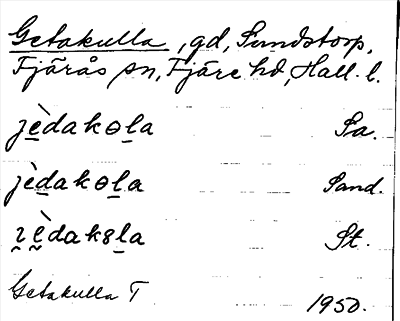 Getakulla, gd, Sundstorp,
Fjärås sn, Fjäre hd, Hall. l.
jèdakɵla Sa.
jèdakɵla Sand.
ɿèdak8la St.
Getakulla T 1950.